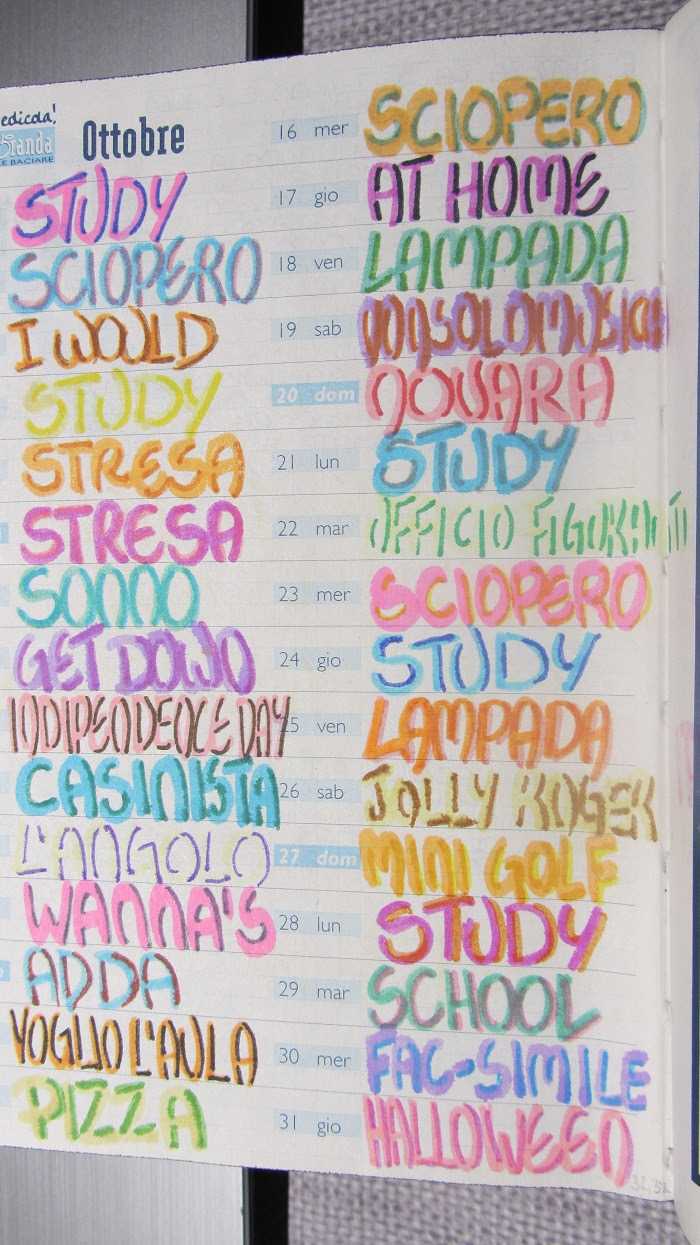 edicola!
E BACIARE
Ottobre
STUDY
SCIOPERO
I WOULD
STUDY
STRESA
STRESA
SONNO
GET DOWN
INDIPENDENCE DAY
CASINISTA
L'ANGOLO
WANNA'S
ADDA
VOGLIO L'AULA
PIZZA
16 mer SCIOPERO
17 gio AT HOME
18 ven LAMPADA
19 sab NONSOLOMUSICA
20 dom NOVARA
21 lun STUDY
22 mar UFFICIO
23 mer SCIOPERO
24 gio STUDY
25 ven LAMPADA
26 sab JOLLY ROGER
27 dom MINI GOLF
28 lun STUDY
29 mar SCHOOL
30 mer FAC-SIMILE
31 gio HALLOWEEN